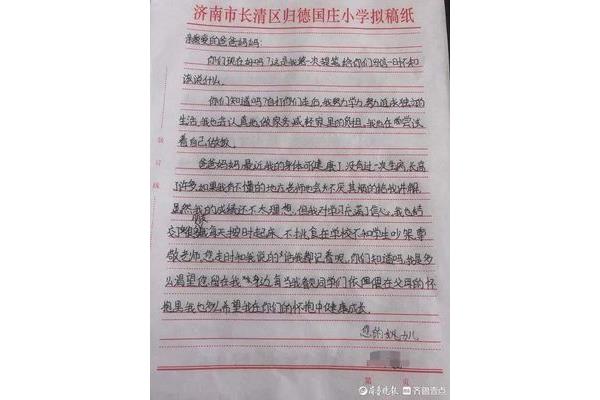 济南市长清区归德国庄小学拟稿纸
亲爱的爸爸妈妈:
你们现在好吗?这是我第一次提笔给你们回信一时不知
该说什么。
你们知道吗?自打你们走后,我努力学习努力适应独立的
生活,我也会认真地做家务减轻家里的负担。我也在尝试
着自己做饭。
爸爸妈妈最近我的身体可健康了没有过一次生病,长高
了许多如果我有不懂的地方老师也会不厌其烦的给我讲解。
虽然我的成绩还不太理想,但我对学习充满了信心,我也
每天按时起床,不挑食在学校不和学生吵架尊
敬老师,您走时和我说的话我都记着呢。你们知道吗,我是多
么渴望您留在我身边,每当我看见同学们依偎在父母的怀
抱里,我也多么希望我在你们的怀抱中健康成长。
您的女儿
装
订
线
第 页
齐鲁晚报 齐鲁壹点